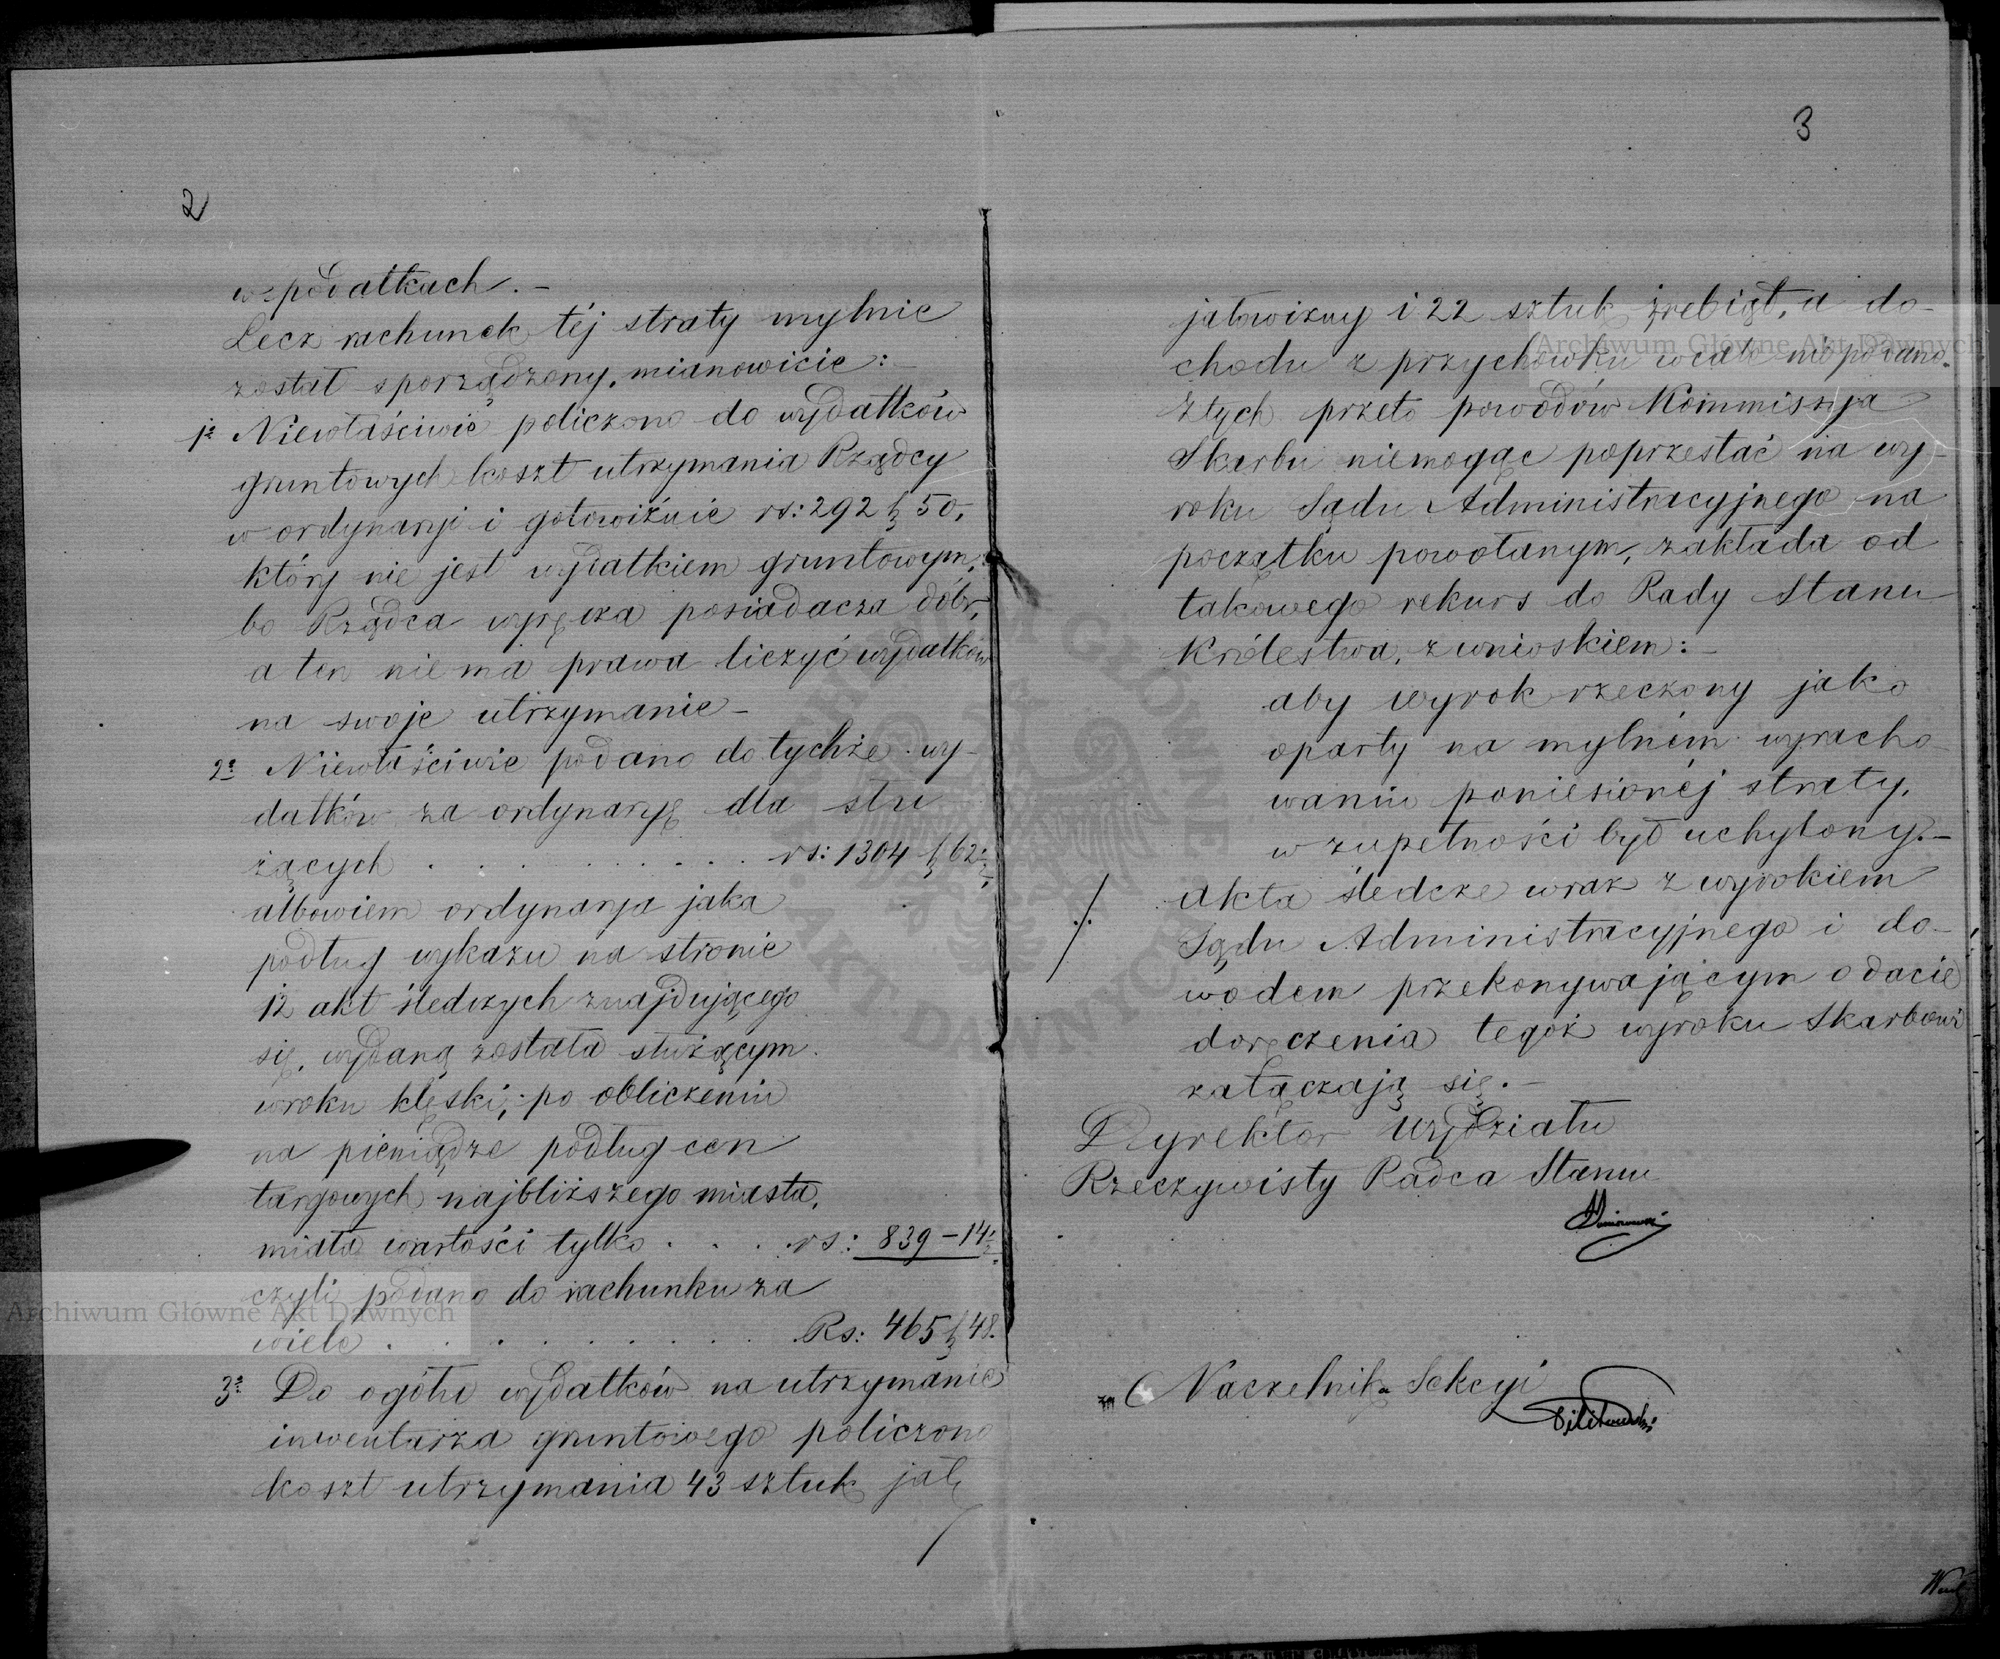 2
w podatkach. –
Lecz rachunek téj straty mylnie
został sporządzony, mianowicie: –
1o Niewłaściwie policzono do wydatków
gruntowych koszt utrzymania Rządcy
w ordynaryi i gotowiźnie rs: 292 k 50,
który nie jest wydatkiem gruntowym,
bo Rządca wyręcza posiadacza dóbr,
a ten niema prawa liczyć wydatków
na swoje utrzymanie –
2o Niewłaściwie podano do tychże wy-
datków za ordynaryę dla słu
żących . . . . . . . . . rs: 1304 k 62½,
albowiem ordynarja jaka
podług wykazu na stronie
12 akt śledczych znajdującego
się, wydaną została służącym
w roku klęski, po obliczeniu
na pieniądze podług cen
targowych najbliższego miasta,
miała wartości tylko . . . . rs: 839 – 14½.
czyli podano do rachunku za
wiele . . . . . . . . . Rs: 465 k 48.
3o Do ogółu wydatków na utrzymanie
inwentarza gruntowego policzono
koszt utrzymania 43 sztuk jał
3
jałowizny i 22 sztuk źrebiąt, a do-
chodu z przychówku wcale niepodano.
Z tych przeto powodów Kommissyja
Skarbu niemogąc poprzestać na wy-
roku Sądu Administracyjnego na
początku powołanym, zakłada od
takowego rekurs do Rady Stanu
Królestwa, z wnioskiem: –
aby wyrok rzeczony jako
oparty na mylném wyracho-
waniu poniesionéj straty,
w zupełności był uchylony. –
Akta śledcze wraz z wyrokiem
Sądu Administracyjnego i do-
wodem przekonywającym o dacie
doręczenia tegoż wyroku Skarbowi
załączają się. –
Dyrektor Wydziału
Rzeczywisty Radca Stanu
za Naczelnika Sekcyi
Archiwum Główne Akt Dawnych
Archiwum Główne Akt Dawnych
ARCHIWUM GŁÓWNE AKT DAWNYCH